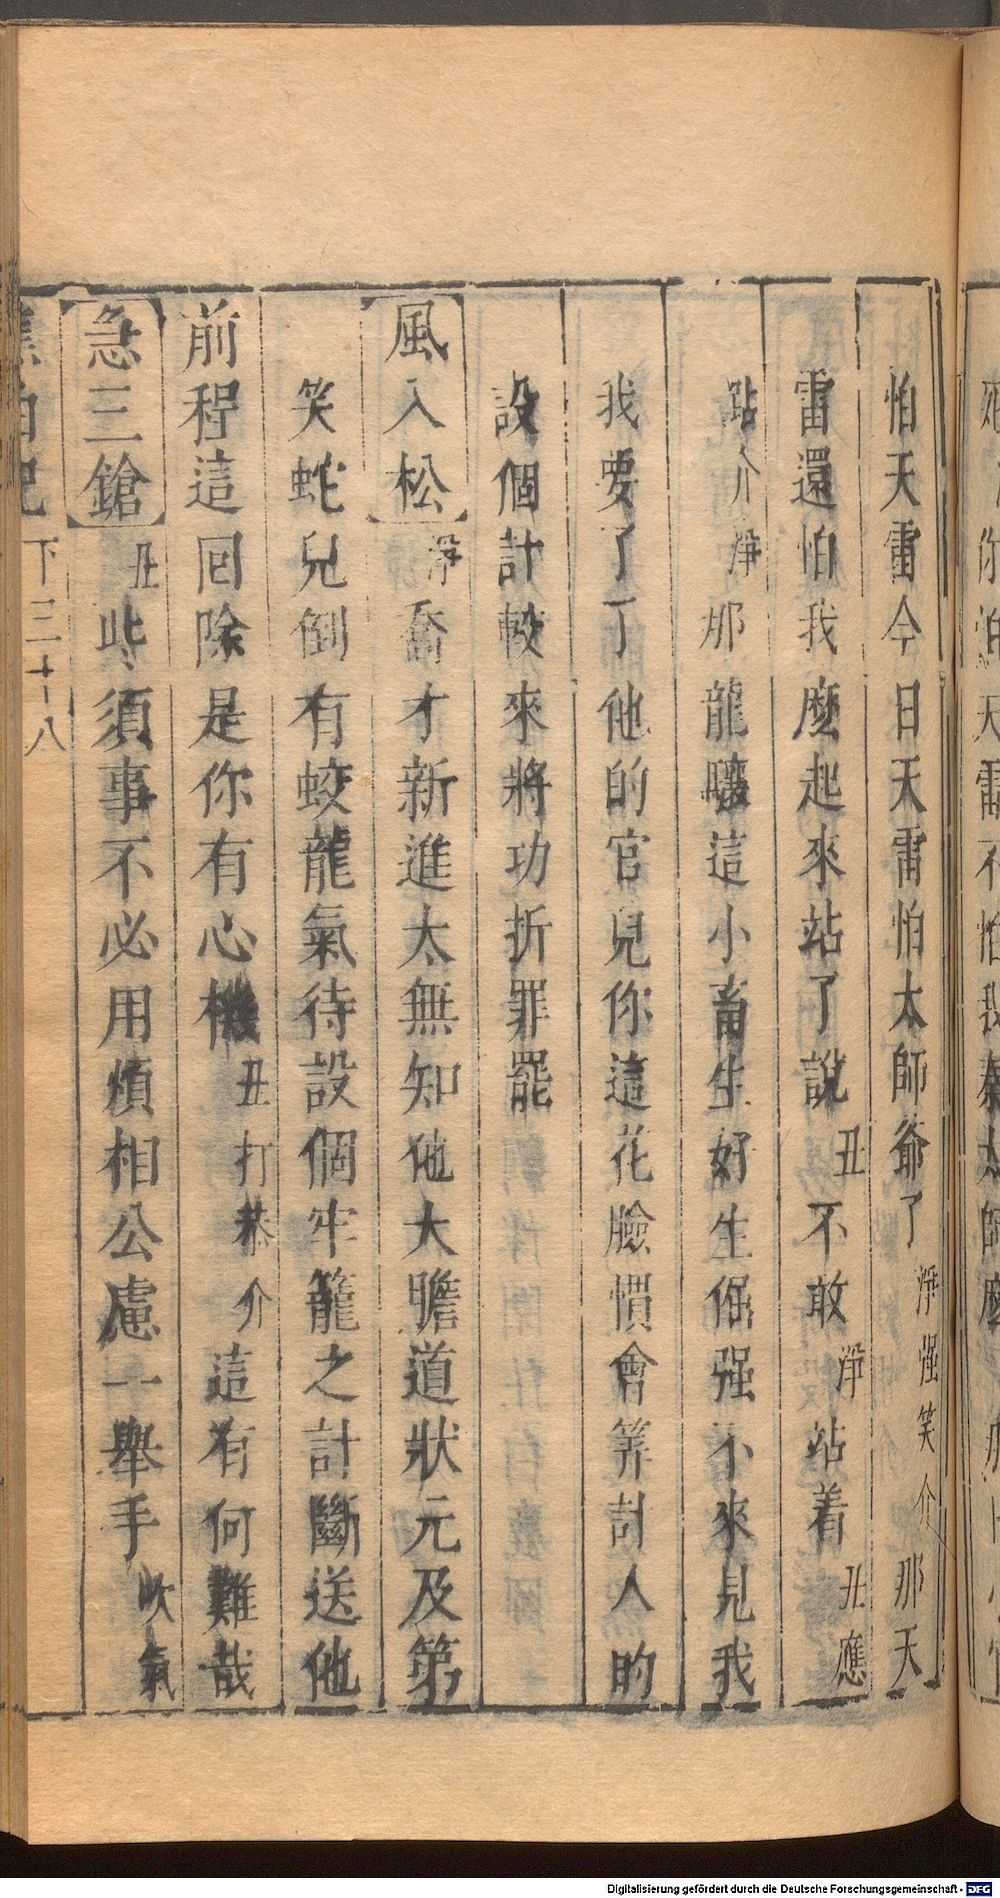 怕天雷今日天雷怕太師爺了淨强笑介那天
雷還怕我麽起來站了說丑不敢淨站着丑應
跕介淨那龍驤這小畜生好生倔强不來見我
我要了丁他的官兒你這花臉慣會筭計人的
設個計較來將功折罪罷
風入松淨喬才新進太無知他大膽道狀元及第
笑蛇兒倒有蛟龍氣待設個牢籠之計斷送他
前程這回除是你有心機丑打恭介這有何難哉
急三鎗丑此須事不必用煩相公慮一舉手吹氣
下三十八
Digitalisierung gefördert durch die Deutsche Forschungsgemeinschaft - DFG